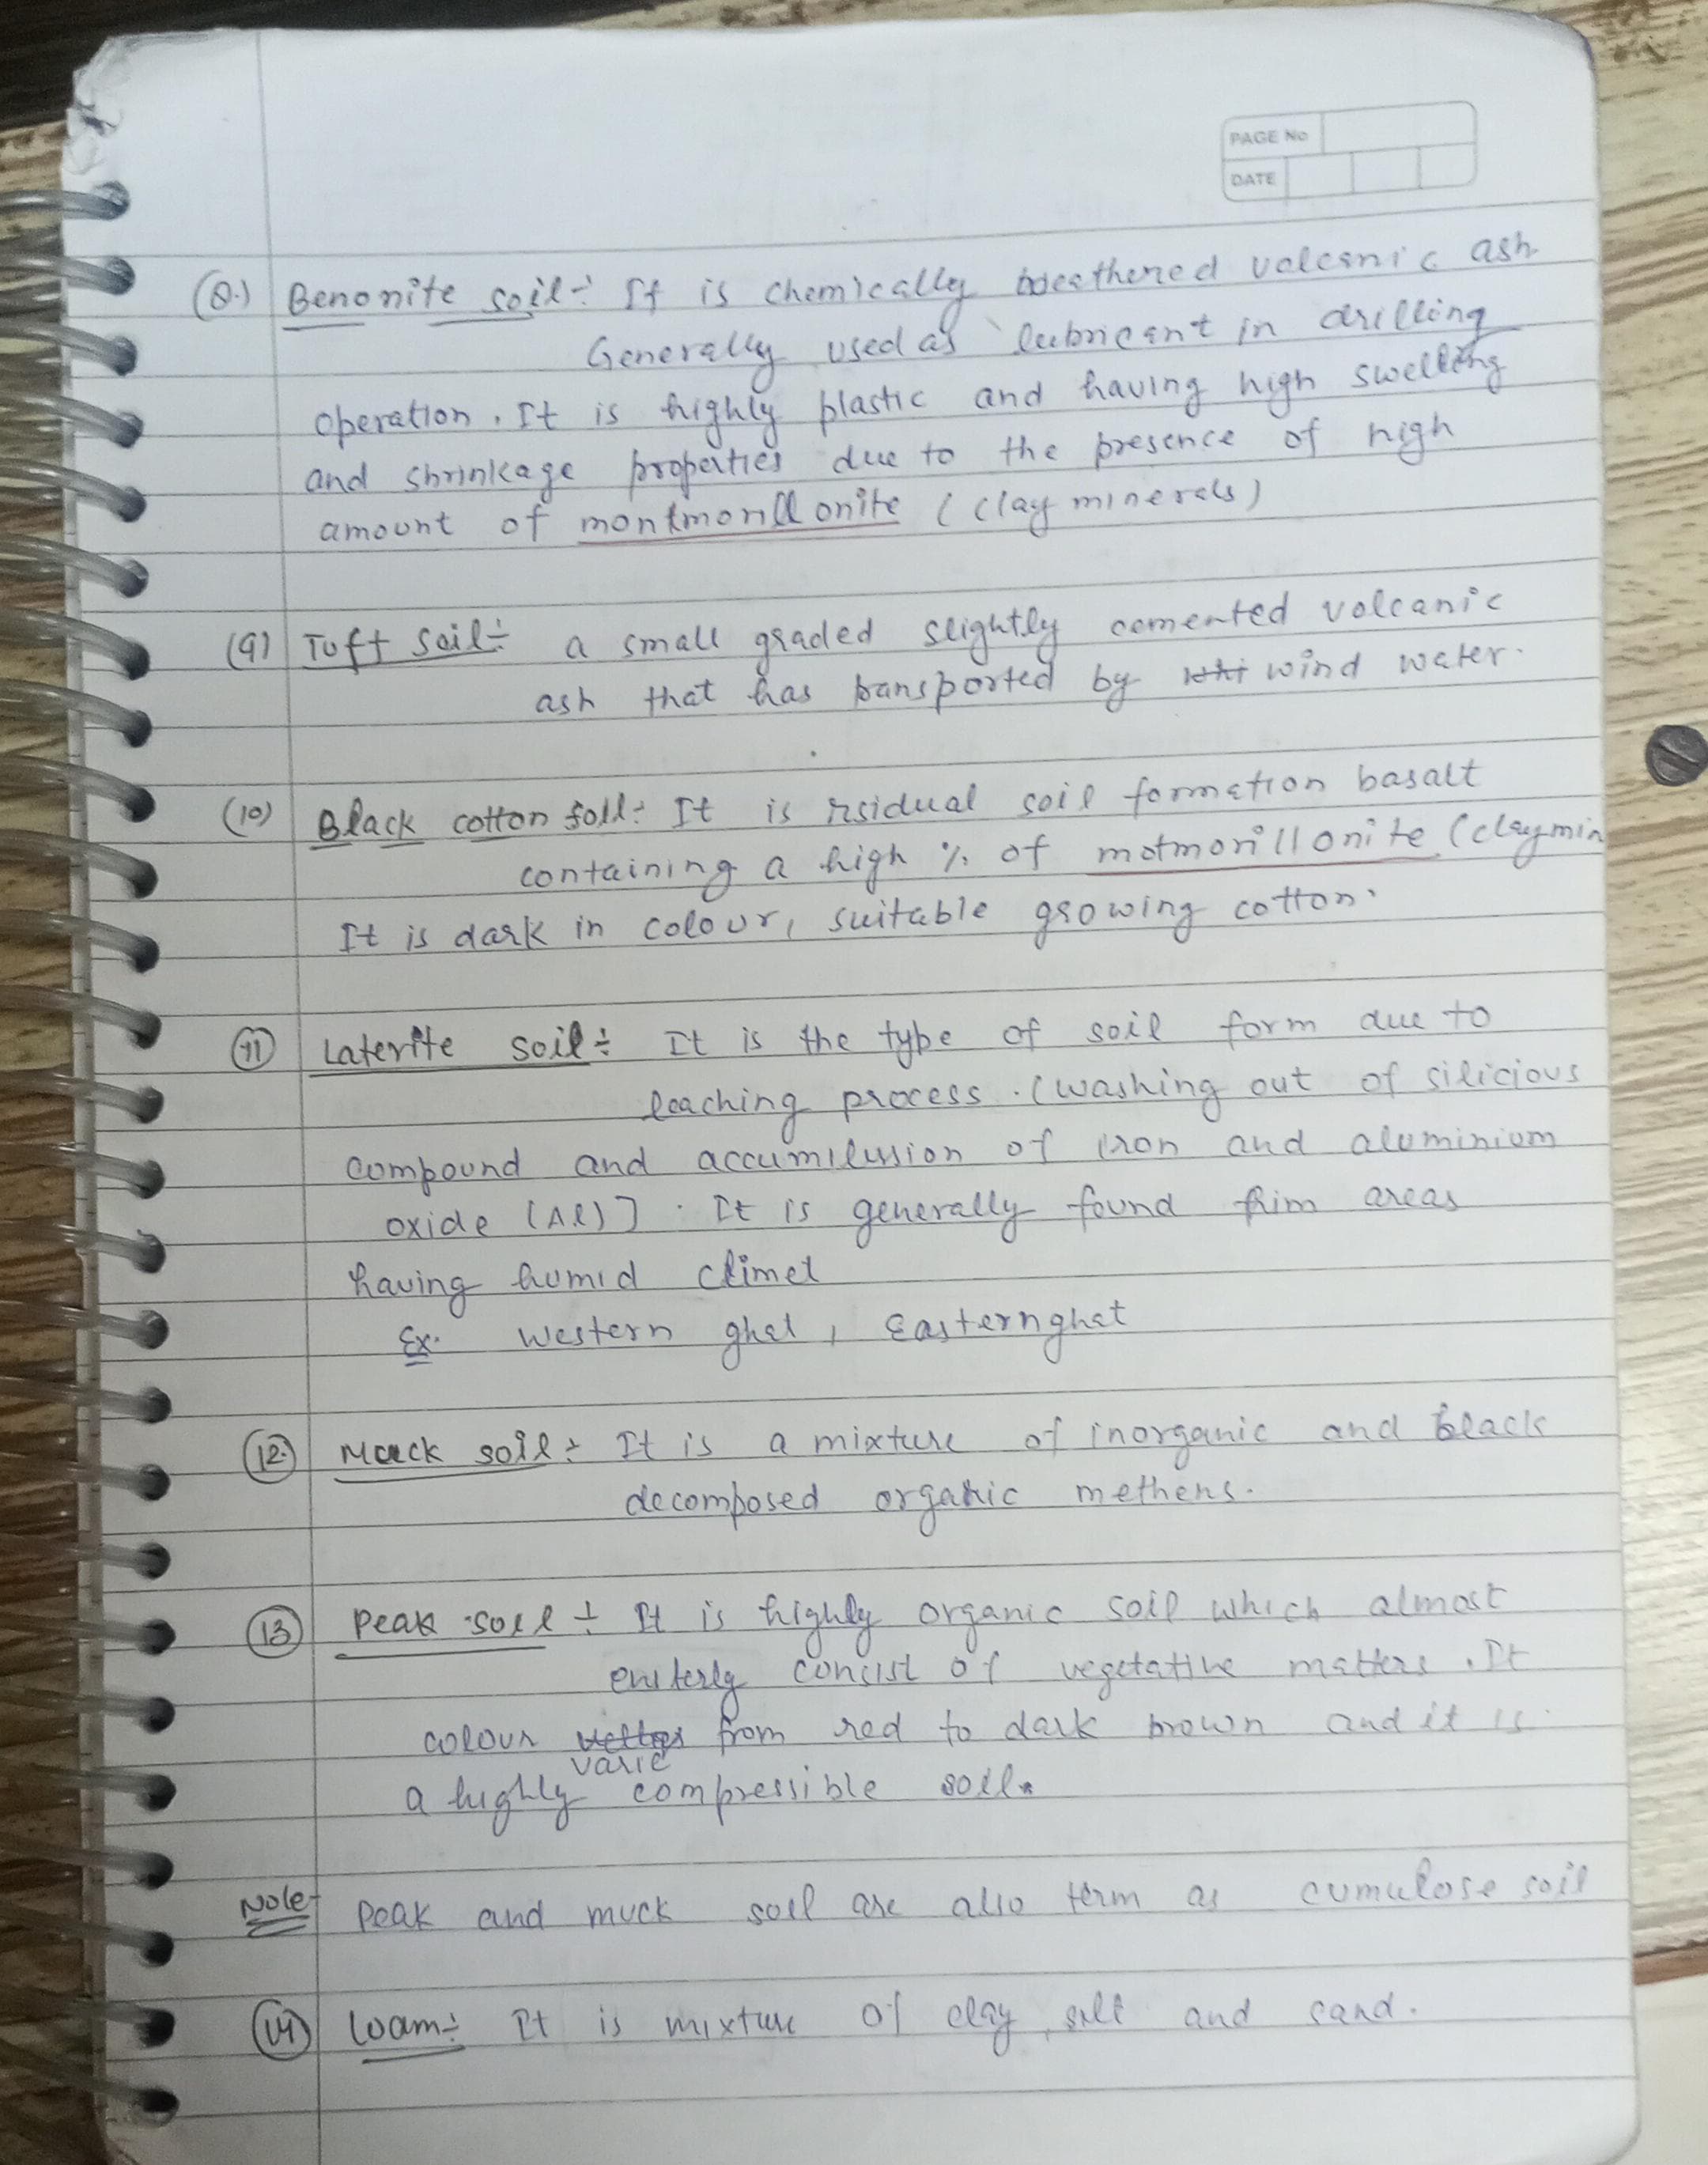 PAGE No
DATE
(8.) Benonite soil÷ It is chemically weathered volcanic ash
Generally used as lubricant in drilling
operation. It is highly plastic and having high swelling
and shrinkage properties due to the presence of high
amount of montmorillonite (clay minerals)
(9) Tuft soil÷ a small graded slightly cemented volcanic
ash that has transported by wind water.
(10) Black cotton soil÷ It is rsidual soil formation basalt
containing a high % of motmorillonite (claymin
It is dark in colour, suitable growing cotton.
(11) Laterite soil÷ It is the type of soil form due to
leaching process. (washing out of silicious
compound and accumilusion of iron and aluminium
oxide (Al)]. It is generally found frim areas
having humid climet
Ex. western ghat, Easternghat
(12.) Muck soil÷ It is a mixture of inorganic and black
decomposed organic methens.
(13) Peak soil÷ It is highly organic soil which almost
eniterly consist of vegetative matters. It
colour varie from red to dark brown and it is
a highly compressible soil.
Note- Peak and muck soil are also term as cumulose soil
(14) Loam÷ It is mixture of clay, silt and sand.